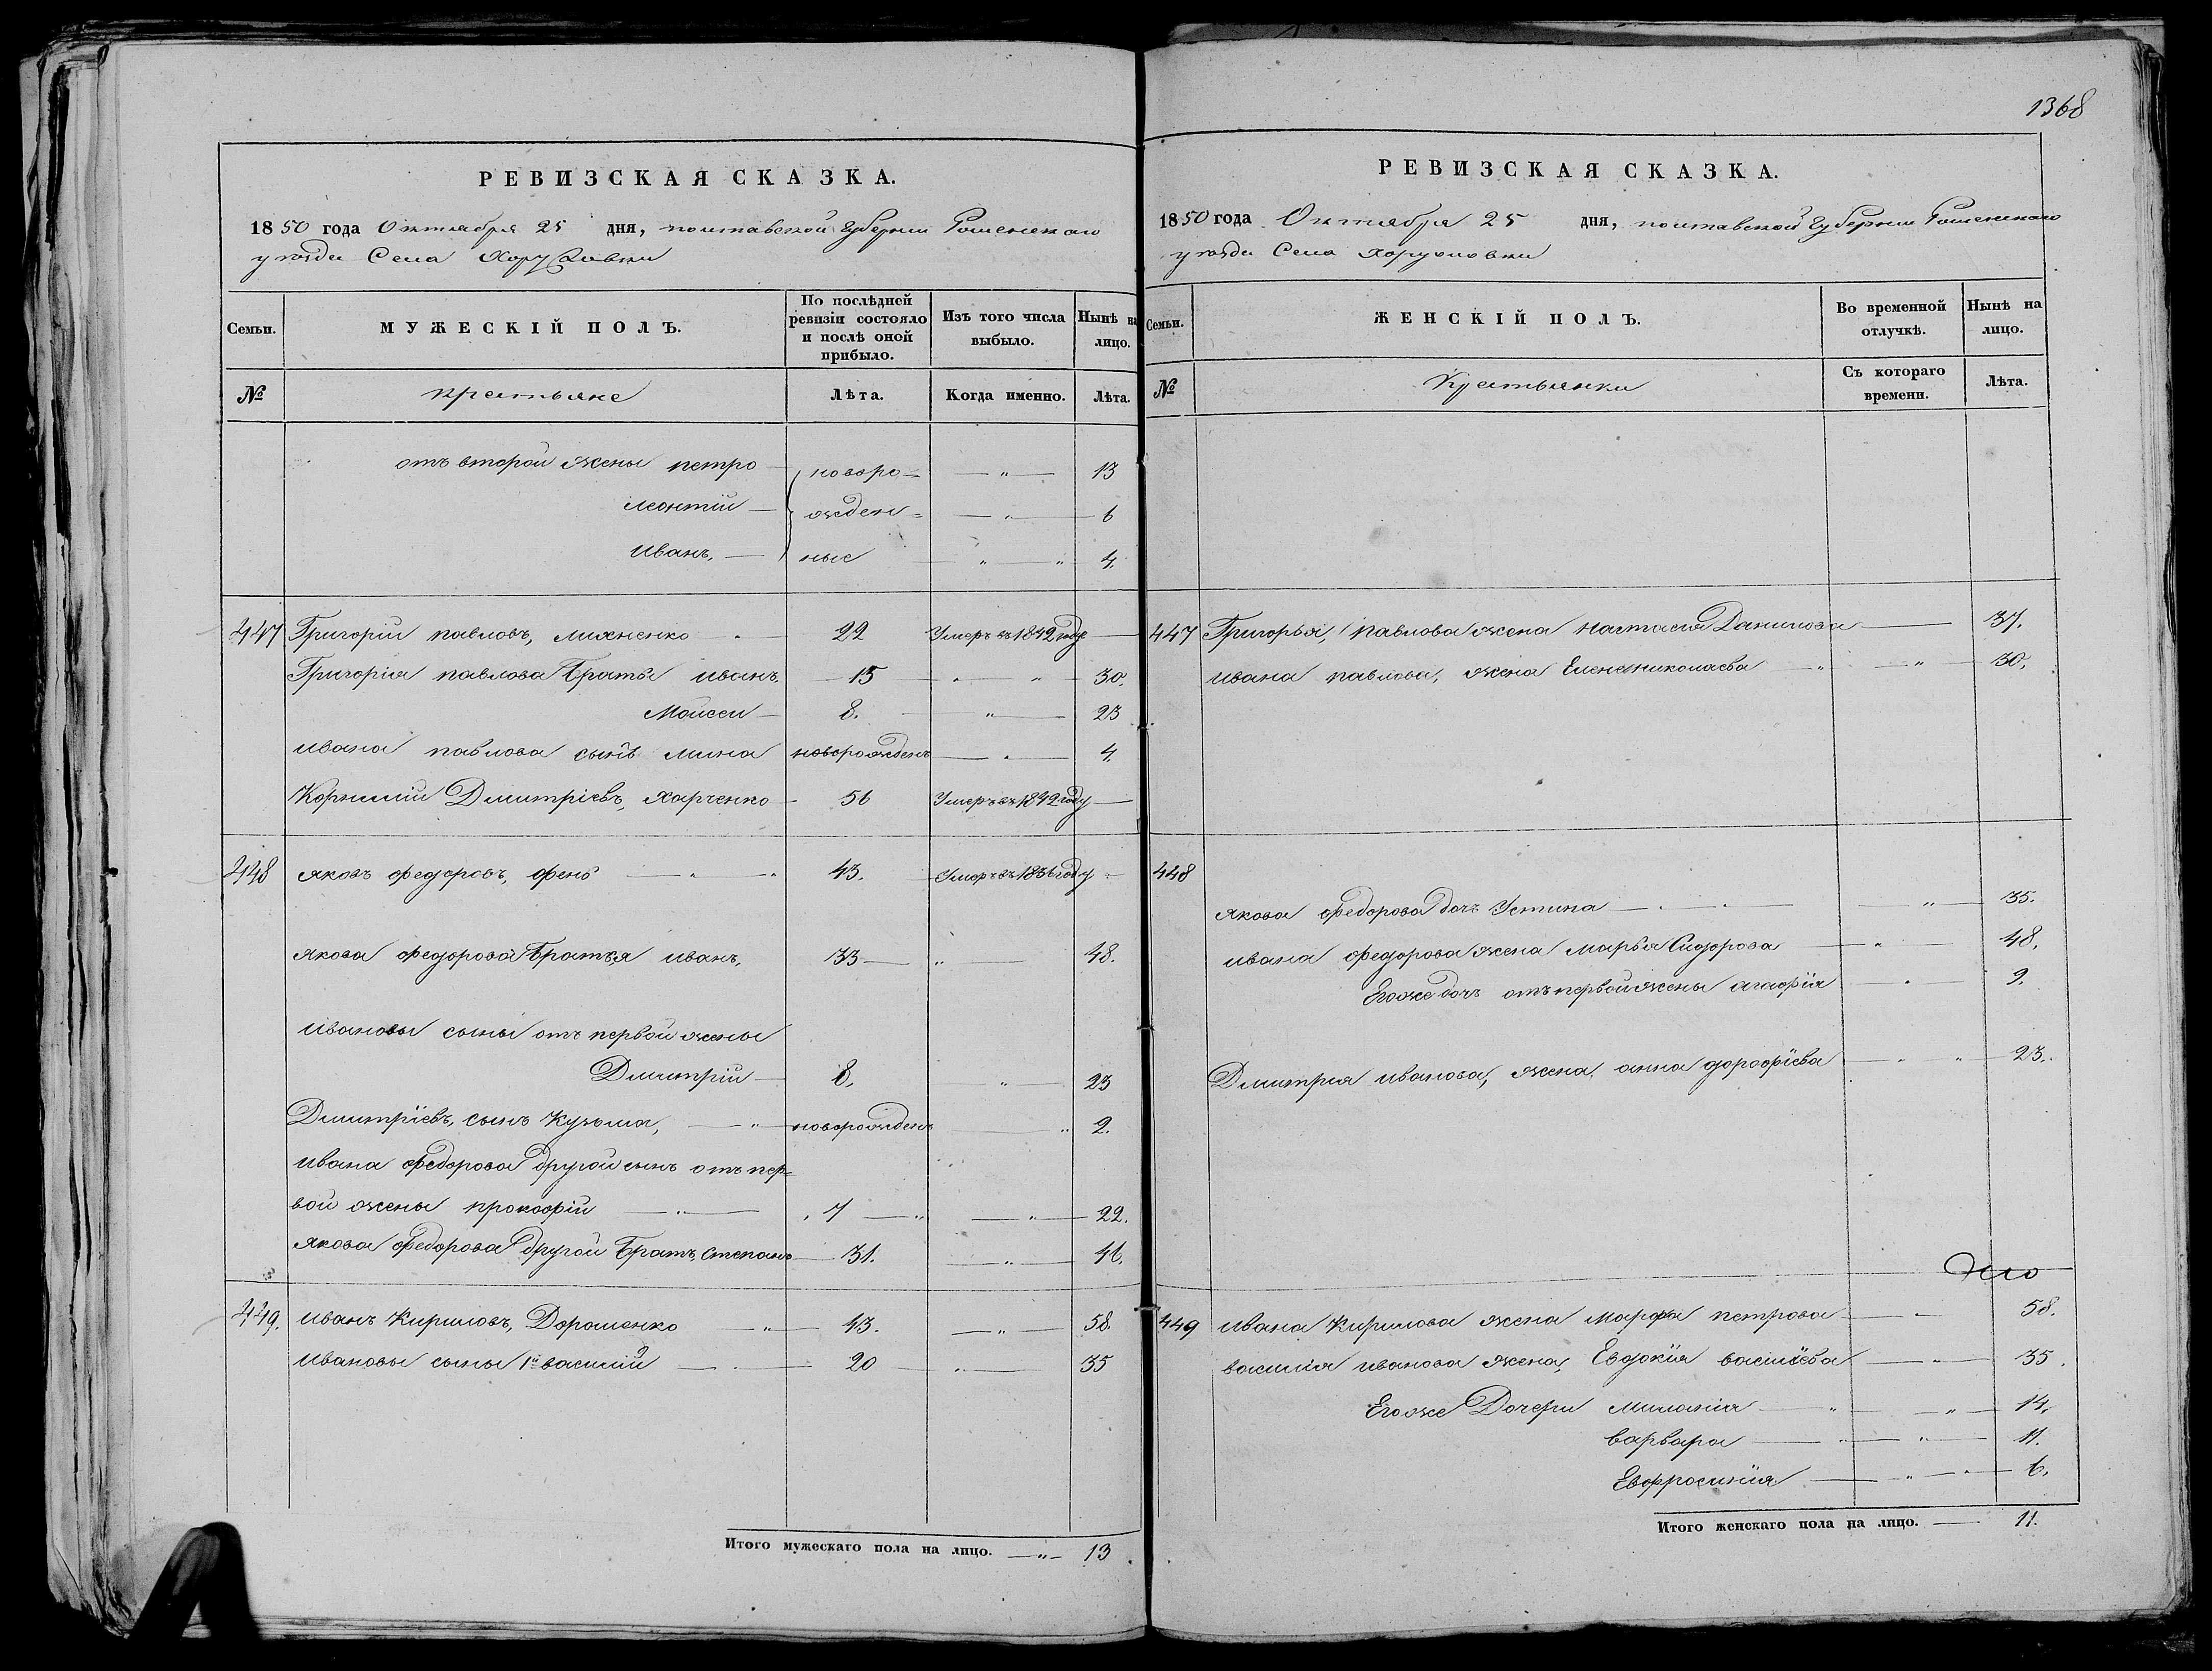 1368
РЕВИЗСКАЯ СКАЗКА.
1850 года Октября 25 дня, полтавской Губернии Роменскаго
уѣзда Села Хоружовки
Семьи. МУЖЕСКІЙ ПОЛЪ. По послѣдней ревизіи состояло и послѣ оной прибыло. Изъ того числа выбыло. Нынѣ на лицо.
№ крестьяне Лѣта. Когда именно. Лѣта.
отъ второй жены петро новоро= — " — 13
леонтій — жден= — " — 6
Иванъ, — ные " — " 4.
447 Григорій павловъ, михненко 22 Умеръ въ 1842 годе —
Григорія павлова братья иванъ — 15 — " — " — 30.
Мойсей — 8. — " — 23
ивана павлова сынъ мина новорожденъ — " — 4.
Корнилій Дмитріевъ, харченко — 56 Умеръ въ 1842 году —
448 яковъ федоровъ, фень — " — " 43. Умеръ въ 1836 году —
якова федорова братья иванъ, 33 — " — 48.
ивановы сыны отъ первой жены
Дмитрій — 8. " 23
Дмитріевъ, сынъ Кузьма, — " — новорожденъ " 2.
ивана федорова другой сынъ отъ пер=
вой жены прокофій — " — 7 — " — " — 22.
якова федорова другой братъ, степанъ — 31. — " — 46.
449. иванъ Кириловъ, Дорошенко — " — 43. — " — 58.
ивановы сыны 1й василий — 20 " — 35
Итого мужескаго пола на лицо. — " — 13.
РЕВИЗСКАЯ СКАЗКА.
1850 года Октября 25 дня, полтавской Губернии Роменскаго
уѣзда Села хоружовки
Семьи. ЖЕНСКІЙ ПОЛЪ. Во временной отлучкѣ. Нынѣ на лицо.
№ Крестьянки Съ котораго времени. Лѣта.
447 Григорья, павлова жена настасия Данилова — 37.
ивана павлова, жена Елена николаева " — " — 30.
448
якова федорова дочь Устина — " — " — " — 35.
ивана федорова жена марья Сидорова — " — 48.
Егоже дочь отъ первой жены агафiя — " — 9.
Дмитрия иванова, жена, анна дорофiева — " — " — 23.
449 ивана Кирилова жена марфа петрова — " — 58.
василия иванова жена, Евдокiя василiева — " — 35.
Егоже Дочери миланiя — " — " — 14.
варвара — " — " — 11.
Евфросинiя — " — " — 6.
Итого женскаго пола на лицо. — 11.